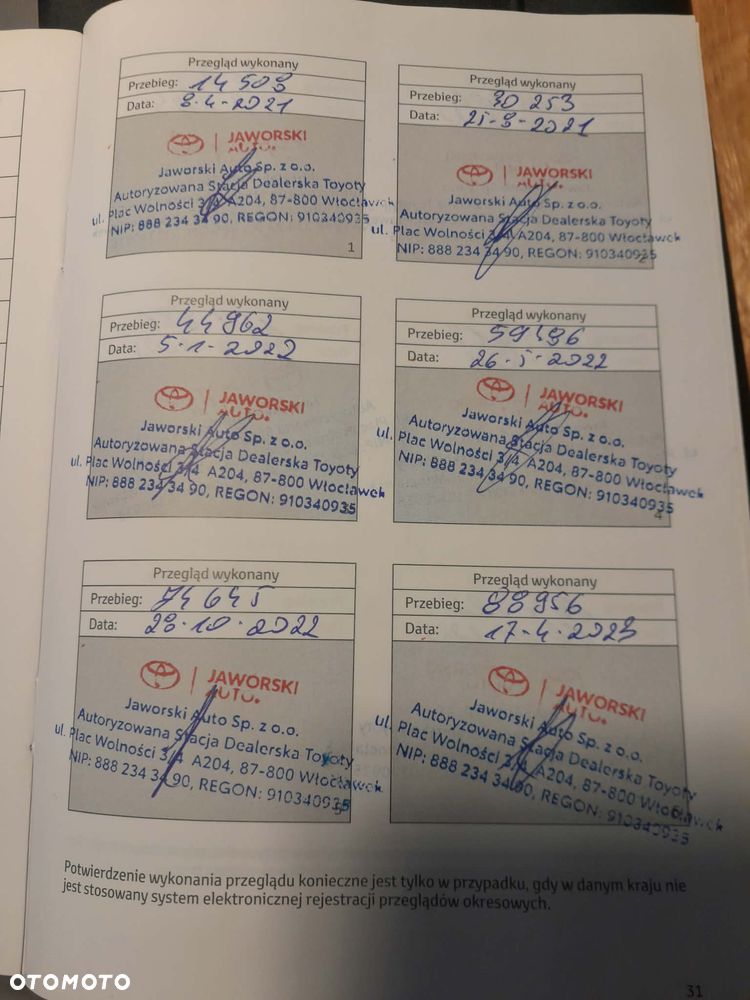 Przegląd wykonany
Przebieg: 14 509
Data: 9-4-2021
JAWORSKI
AUTO.
Jaworski Auto Sp. z o.o.
Autoryzowana Stacja Dealerska Toyoty
ul. Plac Wolności 3/4 A204, 87-800 Włocławek
NIP: 888 234 34 90, REGON: 910340935
1
Przegląd wykonany
Przebieg: 30 253
Data: 21-9-2021
JAWORSKI
AUTO.
Jaworski Auto Sp. z o.o.
Autoryzowana Stacja Dealerska Toyoty
ul. Plac Wolności 3/4 A204, 87-800 Włocławek
NIP: 888 234 34 90, REGON: 910340935
2
Przegląd wykonany
Przebieg: 44 962
Data: 5-1-2022
JAWORSKI
AUTO.
Jaworski Auto Sp. z o.o.
Autoryzowana Stacja Dealerska Toyoty
ul. Plac Wolności 3/4 A204, 87-800 Włocławek
NIP: 888 234 34 90, REGON: 910340935
Przegląd wykonany
Przebieg: 59496
Data: 26-5-2022
JAWORSKI
AUTO.
Jaworski Auto Sp. z o.o.
Autoryzowana Stacja Dealerska Toyoty
ul. Plac Wolności 3/4 A204, 87-800 Włocławek
NIP: 888 234 34 90, REGON: 910340935
4
Przegląd wykonany
Przebieg: 74645
Data: 28-10-2022
JAWORSKI
AUTO.
Jaworski Auto Sp. z o.o.
Autoryzowana Stacja Dealerska Toyoty
ul. Plac Wolności 3/4 A204, 87-800 Włocławek
NIP: 888 234 34 90, REGON: 910340935
5
Przegląd wykonany
Przebieg: 88956
Data: 17-4-2023
JAWORSKI
AUTO.
Jaworski Auto Sp. z o.o.
Autoryzowana Stacja Dealerska Toyoty
ul. Plac Wolności 3/4 A204, 87-800 Włocławek
NIP: 888 234 34 90, REGON: 910340935
6
Potwierdzenie wykonania przeglądu konieczne jest tylko w przypadku, gdy w danym kraju nie
jest stosowany system elektronicznej rejestracji przeglądów okresowych.
31
OTOMOTO